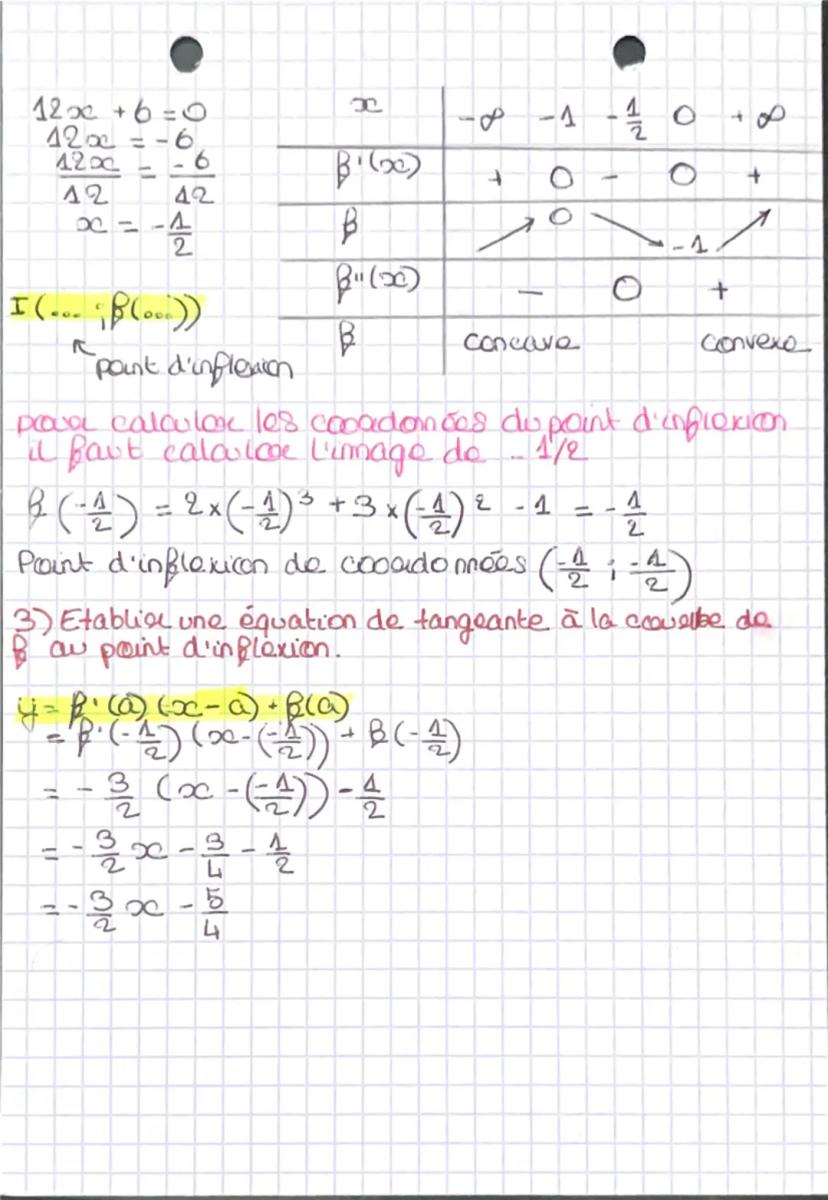 12x + 6 = 0
12x = -6
12x/12 = -6/12
x = -1/2
x -∞ -1 -1/2 0 +∞
f'(x) + 0 - 0 + 
f ↗ 0 ↘ -1 ↗
f''(x) - 0 +
f concave convexe
I(... ; f(...))
↖ point d'inflexion
pour calculer les coordonnées du point d'inflexion
il faut calculer l'image de - 1/2
f(-1/2) = 2×(-1/2)³ + 3×(-1/2)² - 1 = -1/2
Point d'inflexion de coordonnées (-1/2 ; -1/2)
3) Etablir une équation de tangeante à la courbe de
f au point d'inflexion.
y = f'(a)(x-a) + f(a)
= f'(-1/2)(x-(-1/2)) + f(-1/2)
= -3/2 (x-(-1/2)) - 1/2
= -3/2 x - 3/4 - 1/2
= -3/2 x - 5/4